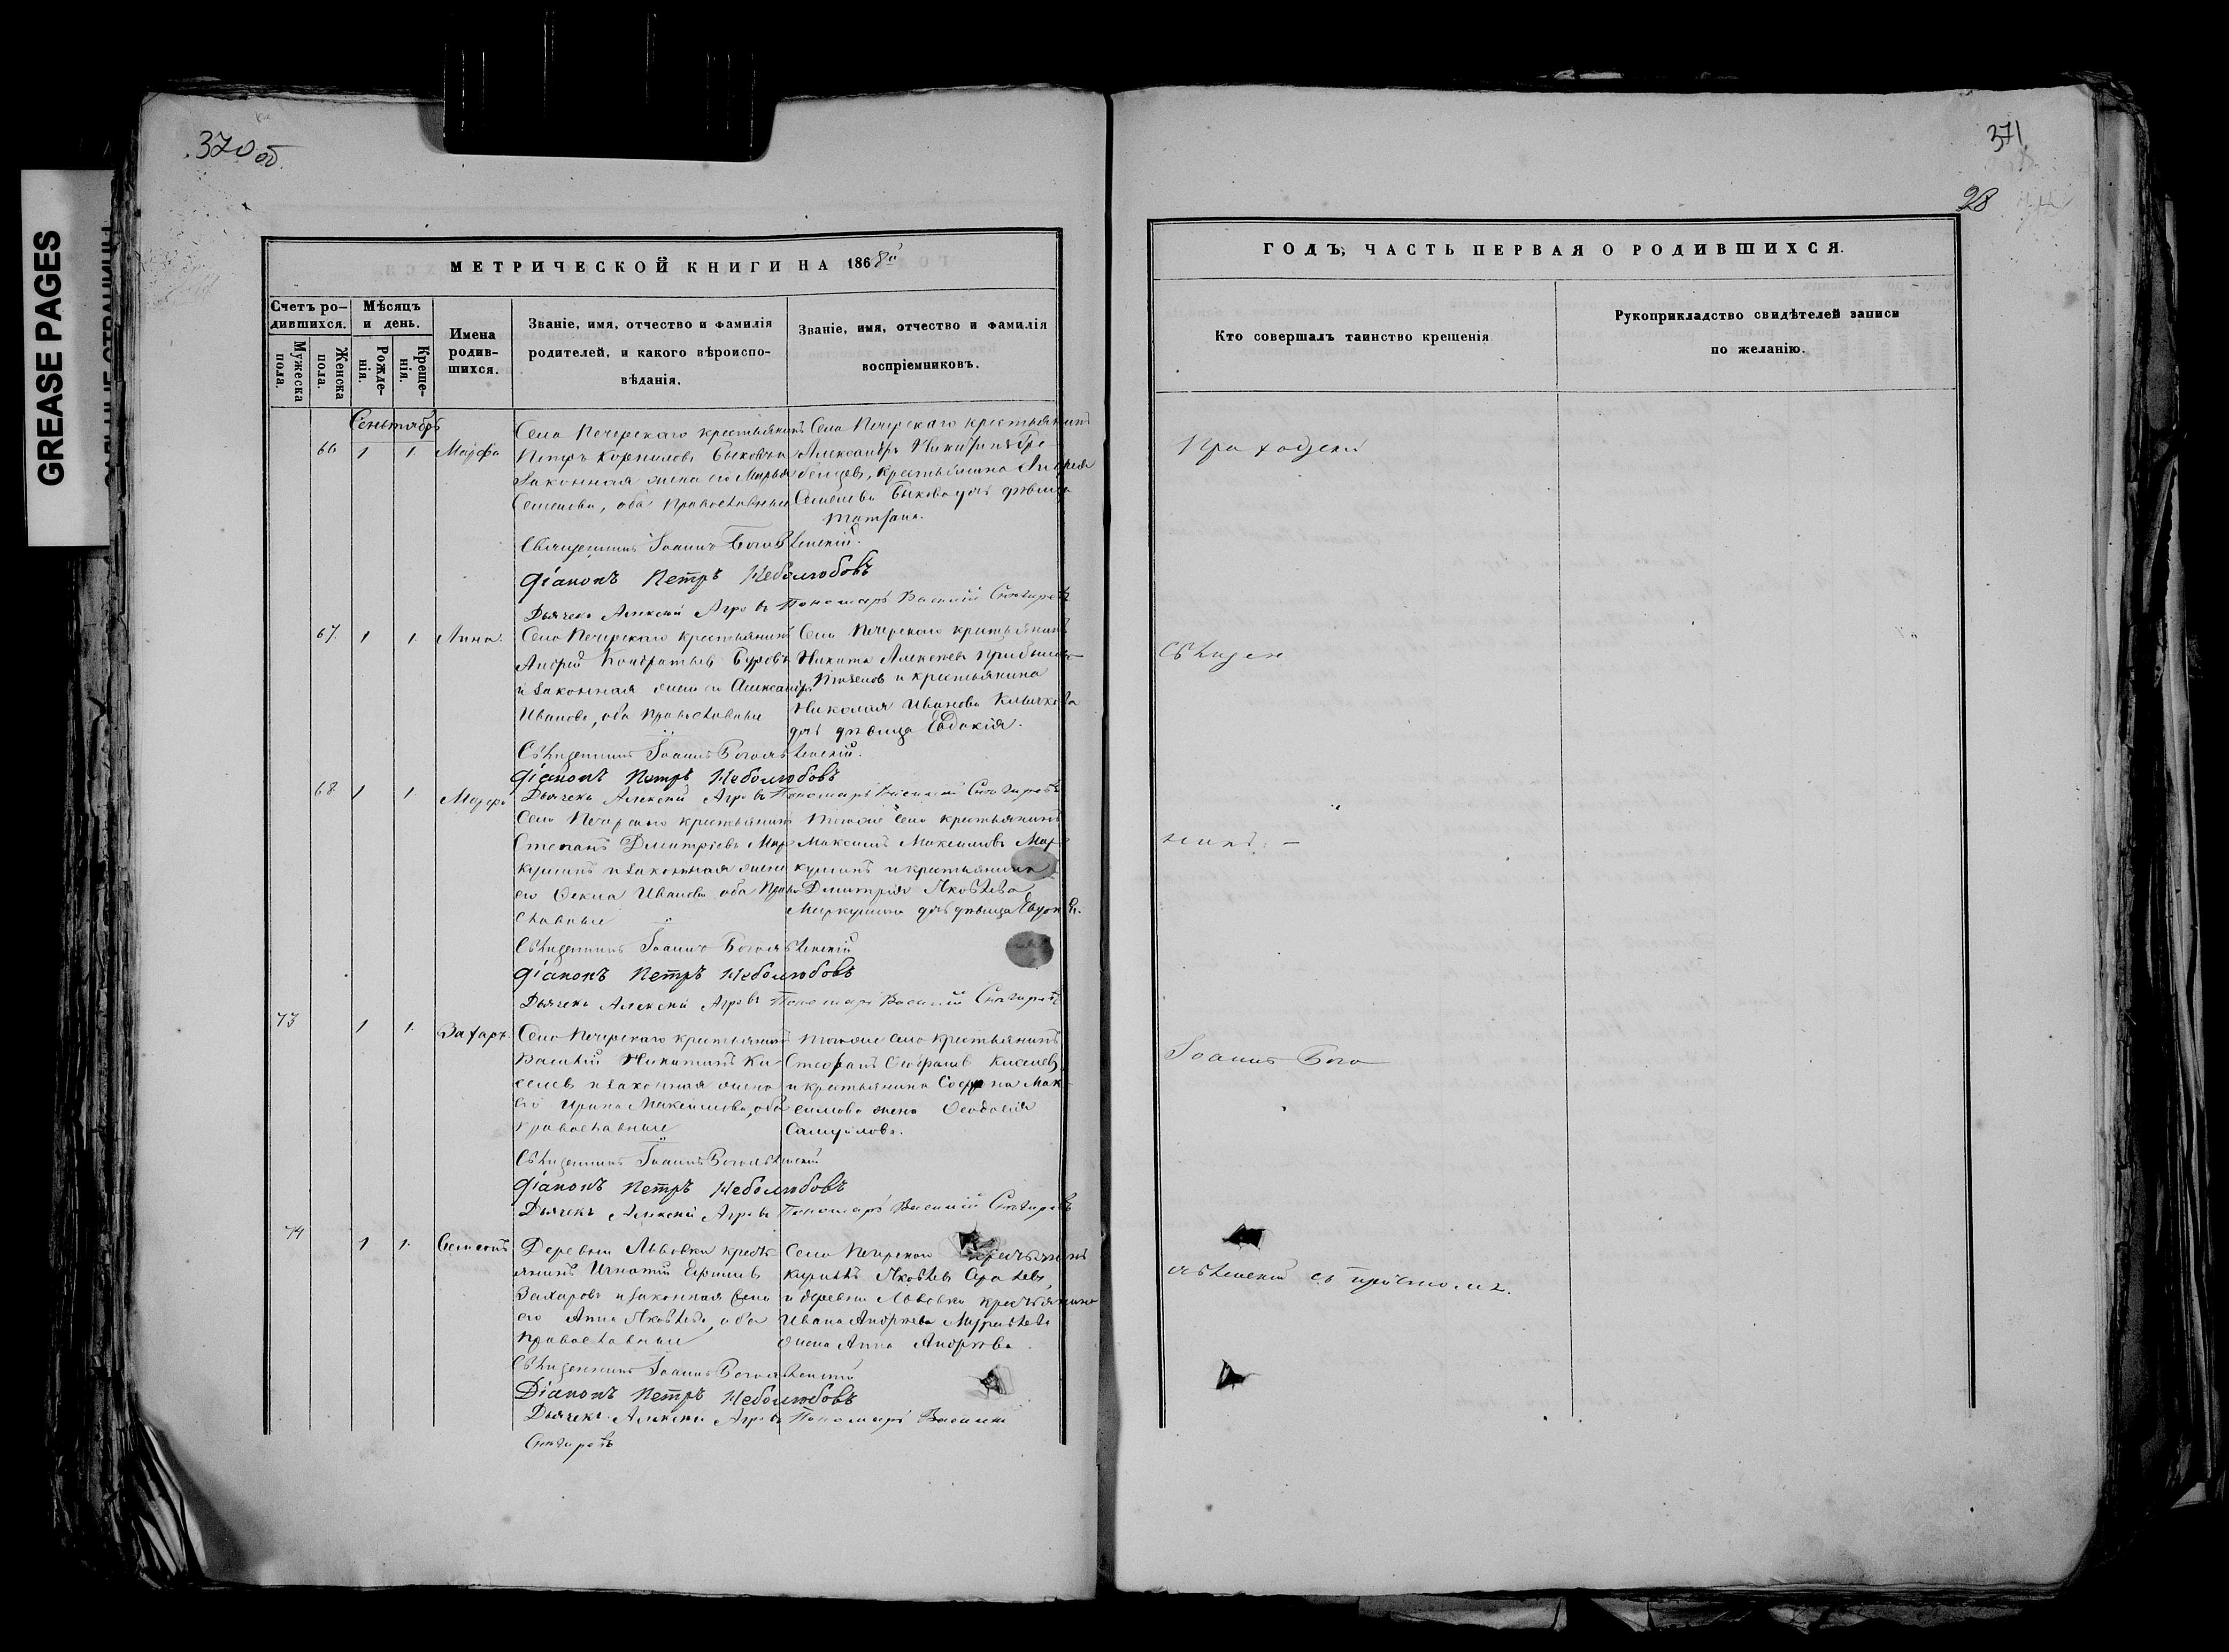 GREASE PAGES
370 об.
МЕТРИЧЕСКОЙ КНИГИ НА 1868й
Счетъ ро-
дившихся.
Мужеска
пола.
Женска
пола.
Мѣсяцъ
и день.
Рожде-
нія.
Креще-
нія.
Имена
родив-
шихся.
Званіе, имя, отчество и фамилія
родителей, и какого вѣроиспо-
вѣданія.
Званіе, имя, отчество и фамилія
воспріемниковъ.
Сентябрь
66 1 1 Марфа
Села Печерскаго крестьянинъ
Петръ Корнилов Быков и
законная жена его Марья
Семенова, оба православные
Села Печерскаго крестьянинъ
Александръ Никитинъ Гре-
бенцов, крестьянина Андрея
Семенова Быкова дочь дѣвица
Матрона.
Священникъ Іоаннъ Богоявленскій.
Діаконъ Петръ Неболюбовъ
Дьячекъ Алексей Агров Пономарь Василій Снегиревъ
67 1 1 Анна.
Села Печерскаго крестьянинъ
Андрей Кондратьев Буровъ
и законная жена его Александра
Иванова, оба православные
Села Печерскаго крестьянинъ
Никита Алексеев
и крестьянина
Николая Иванова
дочь дѣвица Евдокія.
Священникъ Іоаннъ Богоявленскій.
Діаконъ Петръ Неболюбовъ
Дьячекъ Алексей Агров Пономарь Василій Снегиревъ
68 1 1 Марфа
Села Печерскаго крестьянинъ
Степанъ Дмитріевъ Мер-
кушинъ и законная жена
его Фекла Иванова оба право-
славные
Тогоже села крестьянинъ
Максимъ Максимовъ Мер-
кушинъ и крестьянина
Дмитрія Яковлева
Меркушина дочь дѣвица
Священникъ Іоаннъ Богоявленскій
Діаконъ Петръ Неболюбовъ
Дьячекъ Алексей Агров Пономарь Василій Снегиревъ
73 1 1 Захаръ
Села Печерскаго крестьянинъ
Василій Никитинъ Ки-
селев и законная жена
его Ирина Максимова, оба
православные
Тогоже села крестьянинъ
Стефанъ Киселев
и крестьянина Мак-
симова жена Феодосія
Самуилова.
Священникъ Іоаннъ Богоявленскій
Діаконъ Петръ Неболюбовъ
Дьячекъ Алексей Агров Пономарь Василій Снегиревъ
74 1 1 Симеонъ
Деревни Львовки кресть-
янинъ Игнатій Ефимов
Захаров и законная жена
его Анна Яковлева, оба
православные
Села Печерскаго крестьянинъ
Кириллъ Яковлев
и деревни Львовки крестьянина
Ивана Андреева
жена Анна Андреева.
Священникъ Іоаннъ Богоявленскій
Діаконъ Петръ Неболюбовъ
Дьячекъ Алексей Агров Пономарь Василій
Снегиревъ
371
28
ГОДЪ, ЧАСТЬ ПЕРВАЯ О РОДИВШИХСЯ.
Кто совершалъ таинство крещенія
Рукоприкладство свидѣтелей записи
по желанію.
Приходскій
Священ
никъ. —
Іоаннъ Бого
явленскій съ причтомъ.